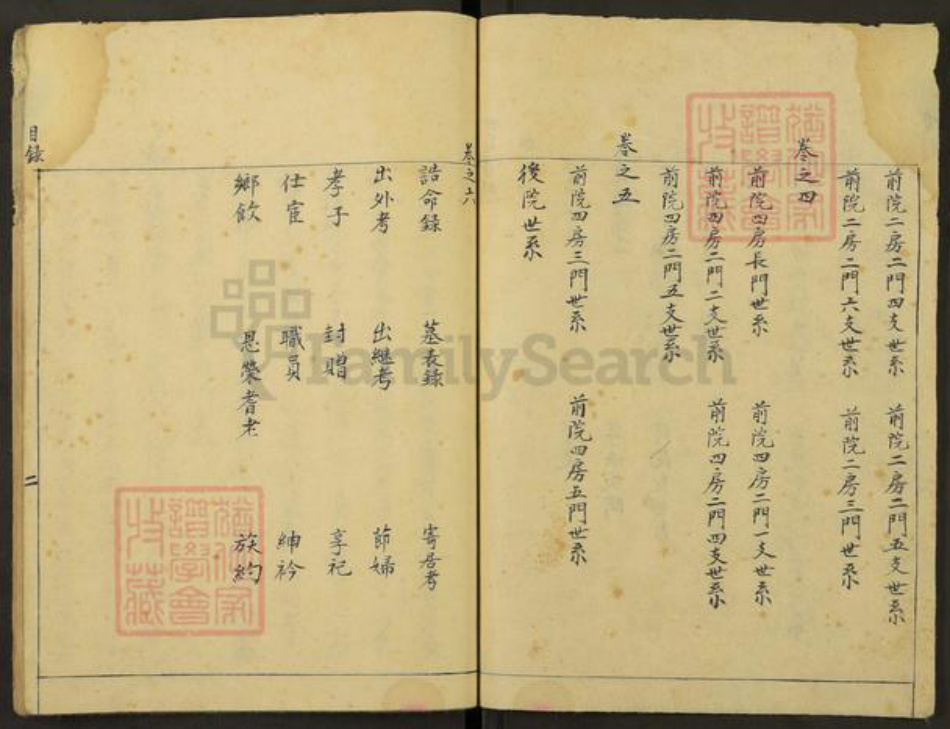 前院二房二門四支世系 前院二房二門五支世系
前院二房二門六支世系 前院二房三門世系
卷之四
前院四房長門世系 前院四房二門一支世系
前院四房二門二支世系 前院四房二門四支世系
前院四房二門五支世系
卷之五
前院四房三門世系 前院四房五門世系
後院世系
卷之六
誥命錄 墓表錄 寄居考
出外考 出繼考 節婦
孝子 封贈 享祀
仕宦 職員 紳衿
鄉飲 恩榮耆老 族約
目錄
二
FamilySearch